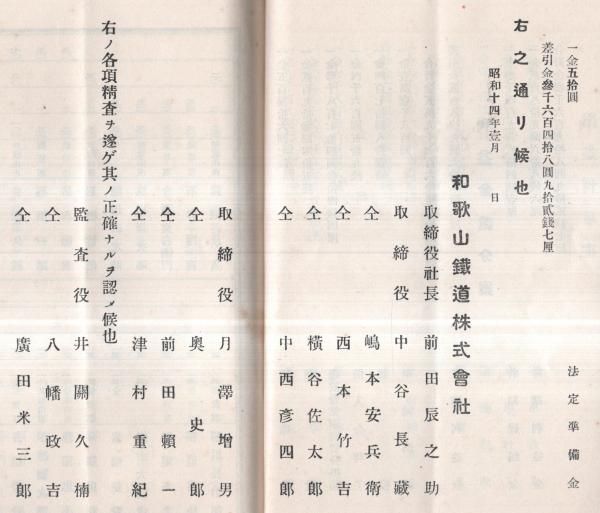 一金五拾圓 法定準備金
差引金參千六百四拾八圓九拾貳錢七厘
右之通リ候也
昭和十四年壹月 日
和歌山鐵道株式會社
取締役社長 前田辰之助
取締役 中谷長藏
仝 嶋本安兵衛
仝 西本竹吉
仝 橫谷佐太郎
仝 中西彥四郎
取締役 月澤增男
仝 奧史郎
仝 前田賴一
仝 津村重紀
右ノ各項精査ヲ遂ゲ其ノ正確ナルヲ認メ候也
監査役 井關久楠
仝 八幡政吉
仝 廣田米三郎